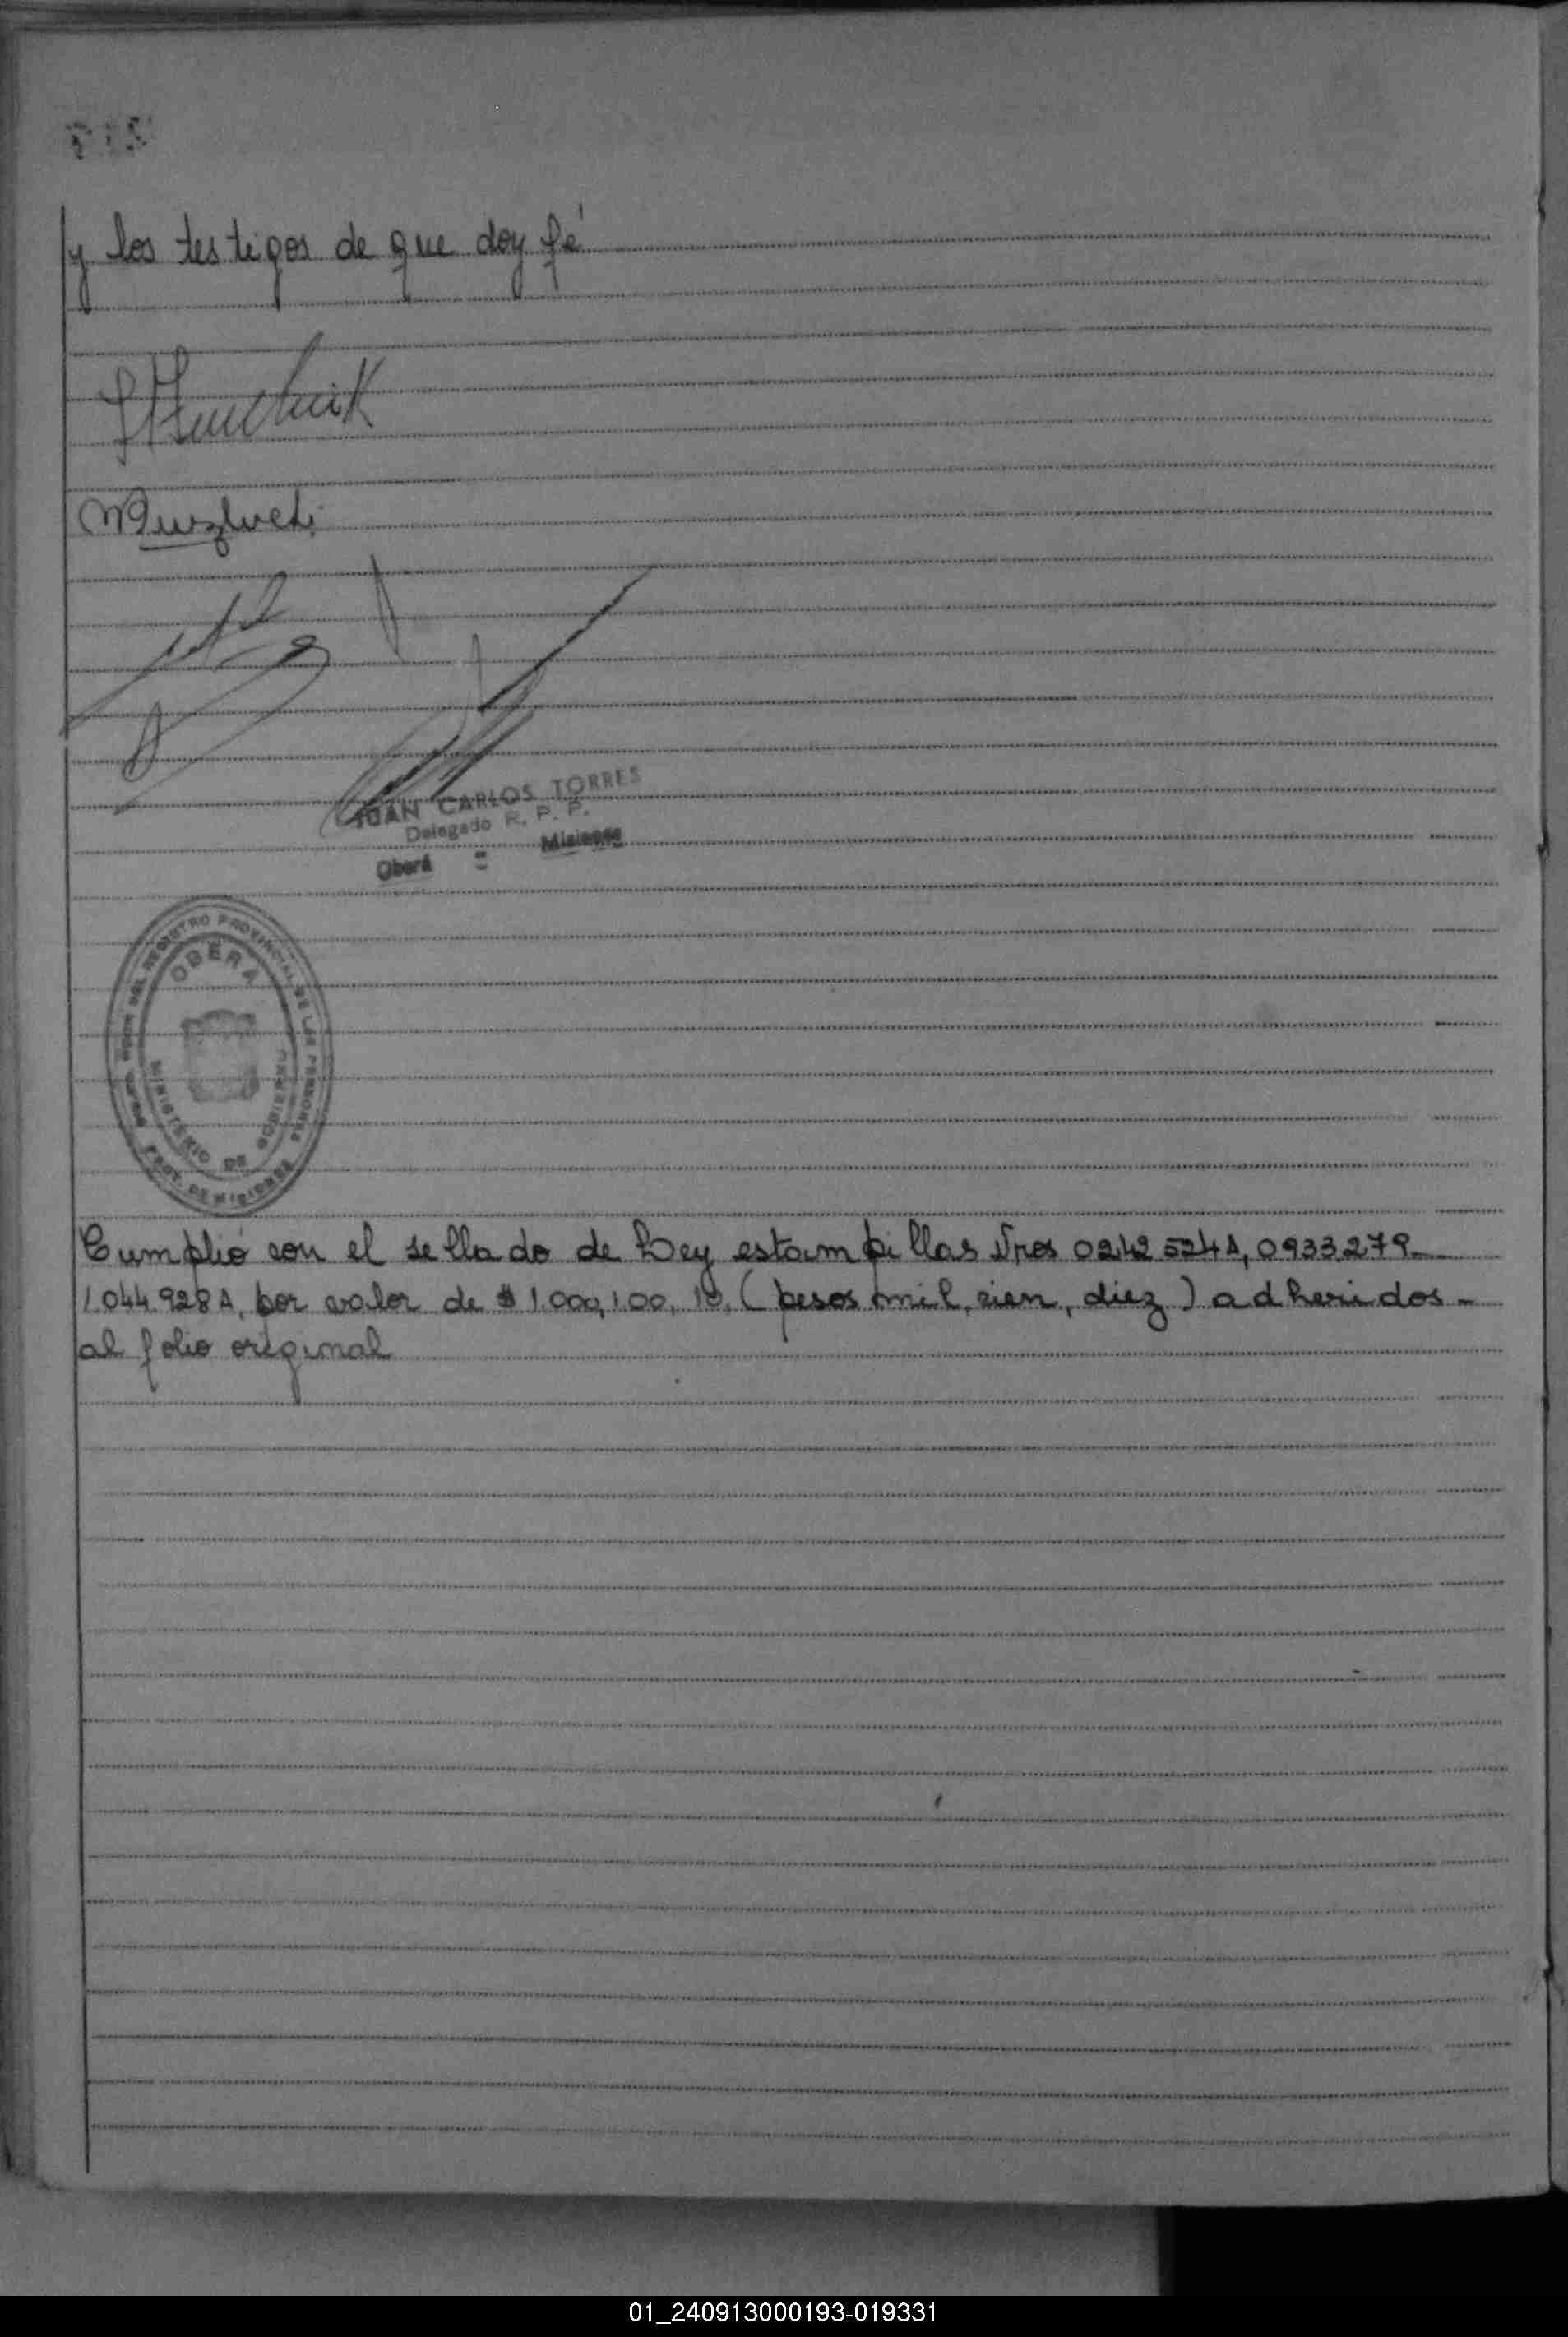 y los testigos de que doy fé
JUAN CARLOS TORRES
Delegado R. P. P.
Oberá - Misiones
REGISTRO PROVINCIAL DE LAS PERSONAS
OBERA
MINISTERIO DE GOBIERNO
PROV. DE MISIONES
Cumplió con el sellado de Ley estampillas Nros 0242524A, 0933279-
1044928A, por valor de $ 1.000,100, 10, (pesos mil, cien, diez) adheridos-
al folio original
01_240913000193-019331